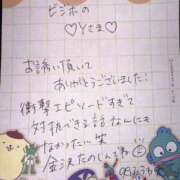 ビジホの
♡Yさま♡
お誘い頂いて
ありがとうございました!
衝撃エピソードすぎて
対抗できる話なんにも
なかったい笑
金沢たのしんでね